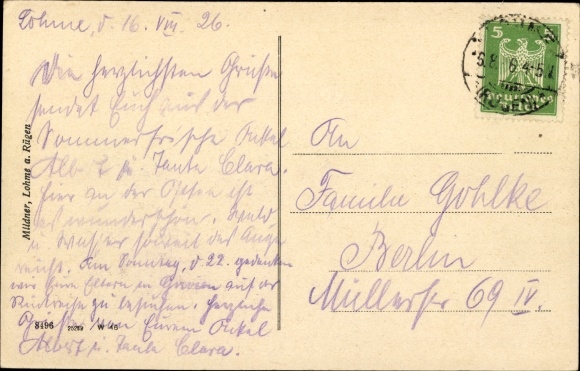 Lohme, d. 16. VIII. 26.
Die herzlichsten Grüße
sendet Euch aus der
Sommerfrische Onkel
Albert u. Tante Clara.
Hier an der Ostsee ist
es wunderschön. Wald
u. Wasser soweit das Auge
reicht. Am Sonntag, d. 22. gedenken
wir Eure Eltern in auf der
Rückreise zu besuchen. Herzliche
Grüße von Eurem Onkel
Albert u. Tante Clara.
Mildner, Lohme a. Rügen
8196 W 45
5
An
Familie Gohlke
Berlin
Müllerstr 69 IV.